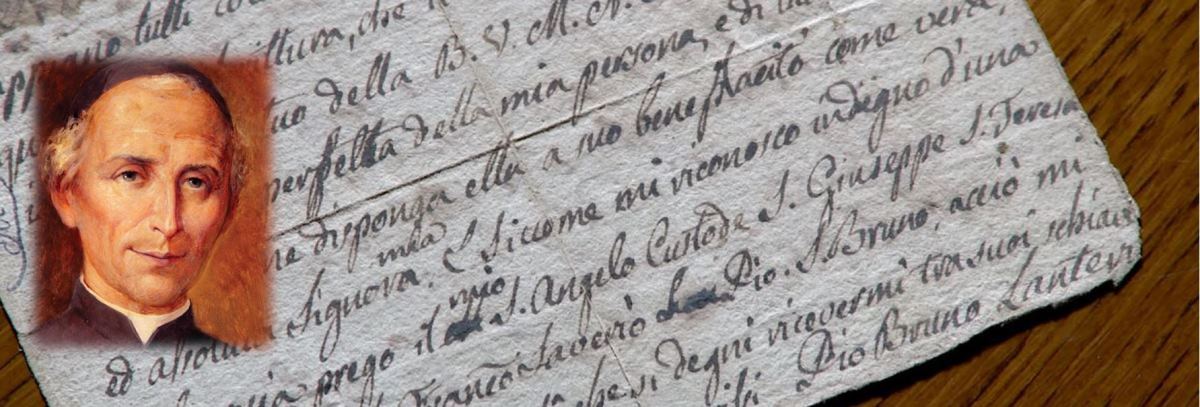 tutti
scrittura, che
della B. V. M. N. S.
perfetta della mia persona, e di
ne disponga ella a suo beneplacito come vera,
mia
ed assoluta Signora. E siccome mi riconosco indegno d'una
prego il mio S. Angelo Custode S. Giuseppe S. Teresa
Franco Saverio S. Pio. S. Bruno, acciò mi
che si degni ricevermi tra suoi schiavi
Pio Bruno Lanteri